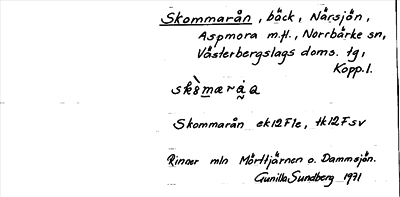 Skommarån, bäck, Närsjön,
Aspmora m.fl., Norrbärke sn,
Västerbergslags doms. tg,
Kopp.l.
Skommarån ek12Fle, tk12Fsv
Rinner mln Mörttjärnen o. Dammsjön.
Gunilla Sundberg 1971